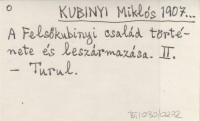 o
KUBINYI Miklós 1907...
A Felsőkubinyi család törté-
nete és leszármazása. II.
- Turul.